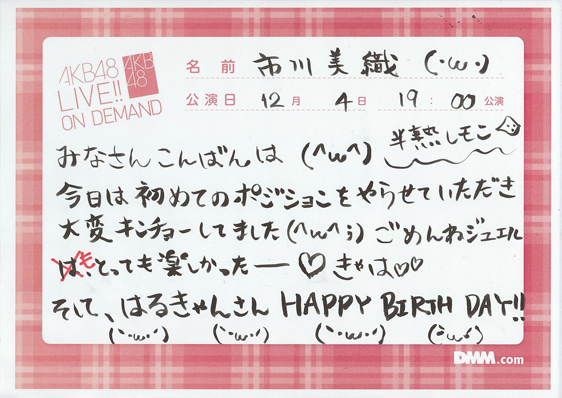 AKB48
LIVE!!
ON DEMAND
AKB
48
名前 市川美織 (・ω・)
公演日 12月 4日 19:00公演
みなさんこんばんは (^ω^) 半熟レモン
今日は初めてのポジションをやらせていただき
大変キンチョーしてました(^ω^;) ごめんねジュエル
は、も とっても楽しかったー♡きゃは♡♡
そして、はるきゃんさん HAPPY BIRTH DAY!!
(・ω・) (・ω・) (・ω・) (・ω・)
DMM.com